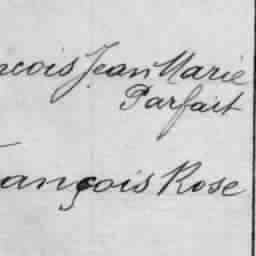 ncois Jean Marie
Parfait
François Rose